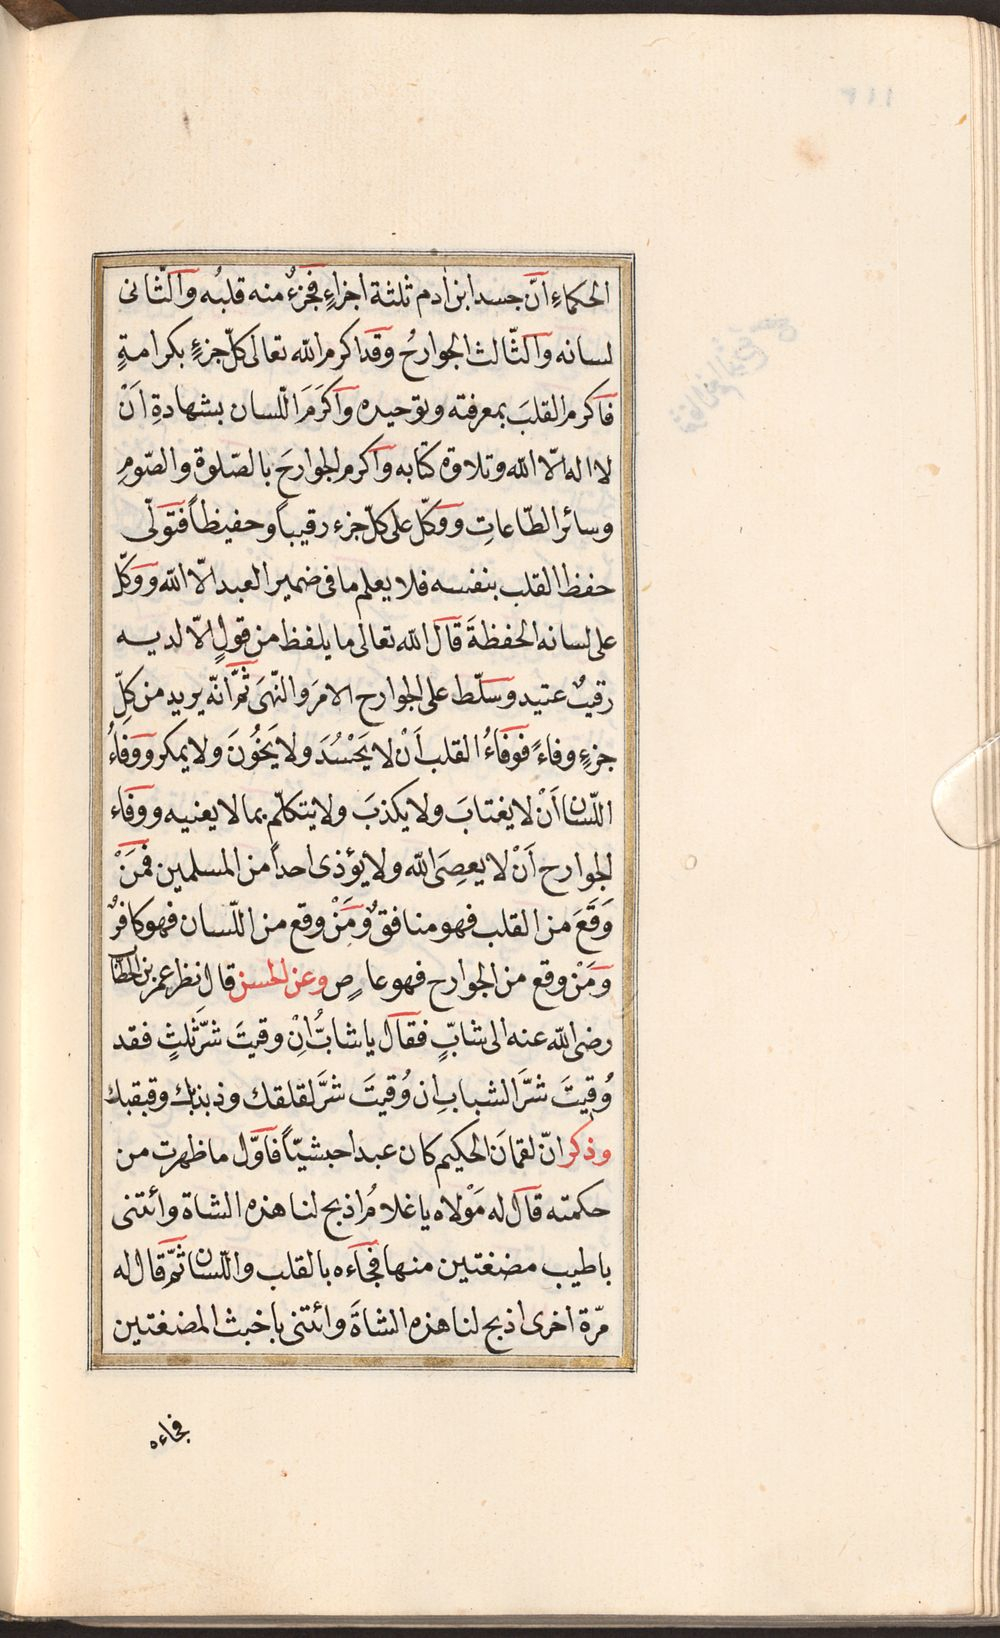 الحكماءِ انّ جسد ابن اٰدم ثلثة اجزاءٍ فجزءٌ منه قلبُه والثّانى
لسانه والثّالث الجوارحُ وقد اكرم الله تعالى كلّ جزءٍ بكرامةٍ
فاكرم القلبَ بمعرفته وتوحيده واكرَمَ اللّسان بشهادةِ اَنْ
لا اله الّا الله وتلاوة كتابه واكرم الجوارحَ بالصّلوة والصّومِ
وسائر الطّاعاتِ ووكّل على كلّ جزء رقيباً وحفيظاً فتولّى
حفظ القلب بنفسه فلا يعلم ما فى ضمير العبد الّا الله ووكّل
على لسانه الحفظةَ قال الله تعالى ما يلفظ من قولٍ الّا لديه
رقيبٌ عتيد وسلّط على الجوارح الامرَ والنّهىَ ثمّ انّه يريد من كلِّ
جزءٍ وفاءً فوفاءُ القلب اَنْ لا يَحْسُدَ ولا يَخُونَ ولا يمكر ووفاءُ
اللّسان اَنْ لا يغتابَ ولا يكذبَ ولا يتكلّم بما لا يعنيه ووفاء
الجوارح اَنْ لا يعصِىَ الله ولا يؤذى احداً من المسلمين فمَنْ
وَقَعَ من القلب فهو منافقٌ ومَنْ وقع من اللّسان فهو كافرٌ
ومَنْ وقع من الجوارح فهو عاصٍ وعن الحسن قال نظر عمر بن الخطاب
رضى الله عنه الى شابٍّ فقال يا شابُّ اِنْ وقيتَ شرَّ ثلثٍ فقد
وُقِيتَ شرَّ الشباب اِن وُقيتَ شرَّ لقلقك وذبذبك وقبقبك
وذكر انّ لقمانَ الحكيم كان عبدا حبشيّاً فاوّل ما ظهرت من
حكمته قال له مَوْلاه يا غلامُ اذبح لنا هذه الشاة وائتنى
باطيب مضغتين منها فجاءه بالقلب واللّسان ثمّ قال له
مرّة اخرى اذبح لنا هذه الشاةَ وائتنى باخبث المضغتين
فجاءه